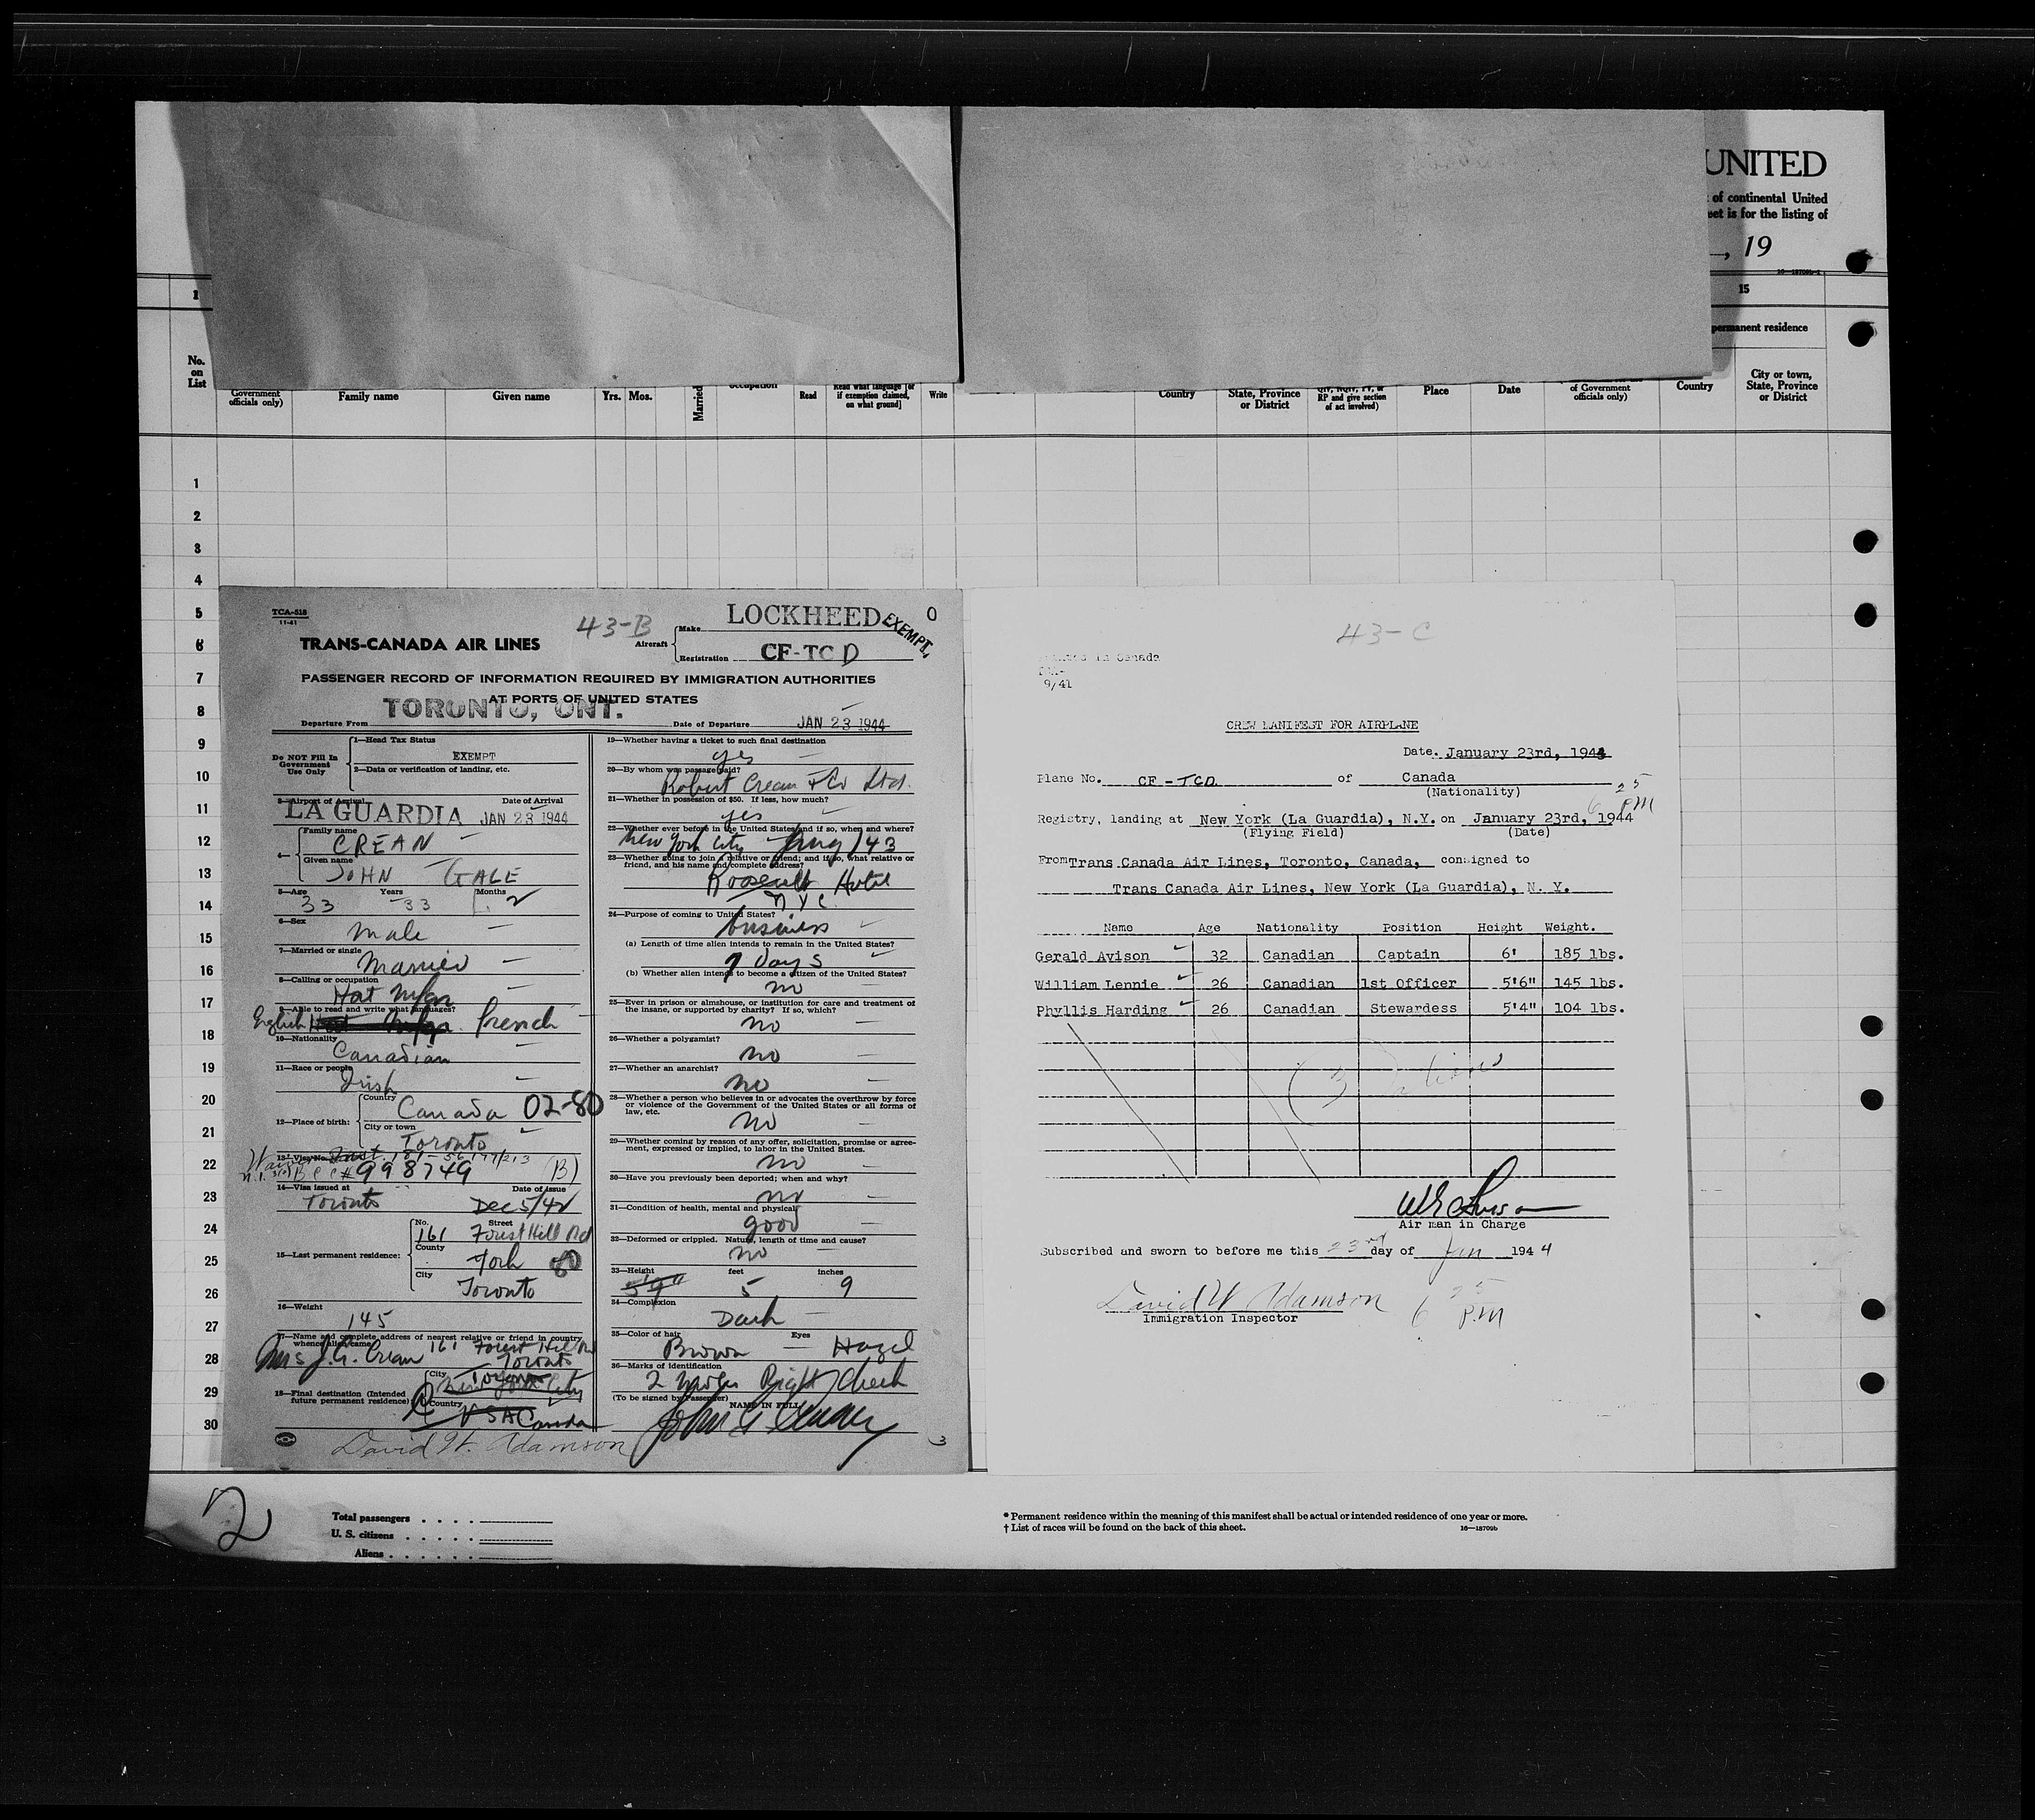 UNITED
of continental United
eet is for the listing of
, 19
16—18709b-1
1
15
permanent residence
No.
on
List
Government
officials only)
Family name
Given name
Yrs.
Mos.
Married
occupation
Read
Read what language [or
if exemption claimed,
on what ground]
Write
Country
State, Province
or District
QIV, NQIV, PV, or
RP and give section
of act involved)
Place
Date
of Government
officials only)
Country
City or town,
State, Province
or District
1
2
3
4
5
6
7
8
9
10
11
12
13
14
15
16
17
18
19
20
21
22
23
24
25
26
27
28
29
30
TCA-518
11-41
43-B
LOCKHEED
EXEMPT.
0
TRANS-CANADA AIR LINES
Aircraft
Make
Registration CF-TCD
PASSENGER RECORD OF INFORMATION REQUIRED BY IMMIGRATION AUTHORITIES
AT PORTS OF UNITED STATES
Departure From TORONTO, ONT. Date of Departure JAN 23 1944
Do NOT Fill In
Government
Use Only
1—Head Tax Status
EXEMPT
2—Data or verification of landing, etc.
3—Airport of Arrival Date of Arrival
LA GUARDIA JAN 23 1944
4—
Family name
CREAN
Given name
JOHN GALE
5—Age Years Months
33 33 2
6—Sex
Male
7—Married or single
Married
8—Calling or occupation
Hat Mfgr
9—Able to read and write what languages?
English French
10—Nationality
Canadian
11—Race or people
Irish
12—Place of birth:
Country
Canada 02-80
City or town
Toronto
13—Visa No.
B C C # 998749 (B)
14—Visa issued at Date of issue
Toronto Dec 5/42
15—Last permanent residence:
No. Street
161 Forest Hill Rd
County
York 80
City
Toronto
16—Weight
145
17—Name and complete address of nearest relative or friend in country
whence alien came
Mrs J.G. Crean 161 Forest Hill Rd
Toronto
18—Final destination (Intended
future permanent residence)
City
Toronto
New York City
Country
USA Canada
David W. Adamson
19—Whether having a ticket to such final destination
yes
20—By whom was passage paid?
Robert Crean & Co Ltd.
21—Whether in possession of $50. If less, how much?
yes
22—Whether ever before in the United States and if so, when and where?
New York City Aug / 43
23—Whether going to join a relative or friend; and if so, what relative or
friend, and his name and complete address?
Roosevelt Hotel
N Y C
24—Purpose of coming to United States?
business
(a) Length of time alien intends to remain in the United States?
7 days
(b) Whether alien intends to become a citizen of the United States?
no
25—Ever in prison or almshouse, or institution for care and treatment of
the insane, or supported by charity? If so, which?
no
26—Whether a polygamist?
no
27—Whether an anarchist?
no
28—Whether a person who believes in or advocates the overthrow by force
or violence of the Government of the United States or all forms of
law, etc.
no
29—Whether coming by reason of any offer, solicitation, promise or agree-
ment, expressed or implied, to labor in the United States.
no
30—Have you previously been deported; when and why?
no
31—Condition of health, mental and physical
good
32—Deformed or crippled. Nature, length of time and cause?
no
33—Height feet inches
5'9" 5 9
34—Complexion
Dark
35—Color of hair Eyes
Brown — Hazel
36—Marks of identification
2 moles Right Cheek
(To be signed by Passenger)
NAME IN FULL
3
43-C
in Canada
9/41
CREW MANIFEST FOR AIRPLANE
Date. January 23rd, 1944
Plane No. CF-TCD of Canada
(Nationality)
6 25 PM
Registry, landing at New York (La Guardia), N.Y. on January 23rd, 1944
(Flying Field) (Date)
From Trans Canada Air Lines, Toronto, Canada, consigned to
Trans Canada Air Lines, New York (La Guardia), N. Y.
Name Age Nationality Position Height Weight.
Gerald Avison 32 Canadian Captain 6' 185 lbs.
William Lennie 26 Canadian 1st Officer 5'6" 145 lbs.
Phyllis Harding 26 Canadian Stewardess 5'4" 104 lbs.
(3
Air man in Charge
Subscribed and sworn to before me this 23rd day of Jan 1944
David W Adamson 6 25 P.M
Immigration Inspector
2
Total passengers
U. S. citizens
Aliens
* Permanent residence within the meaning of this manifest shall be actual or intended residence of one year or more.
† List of races will be found on the back of this sheet.
16—18709b